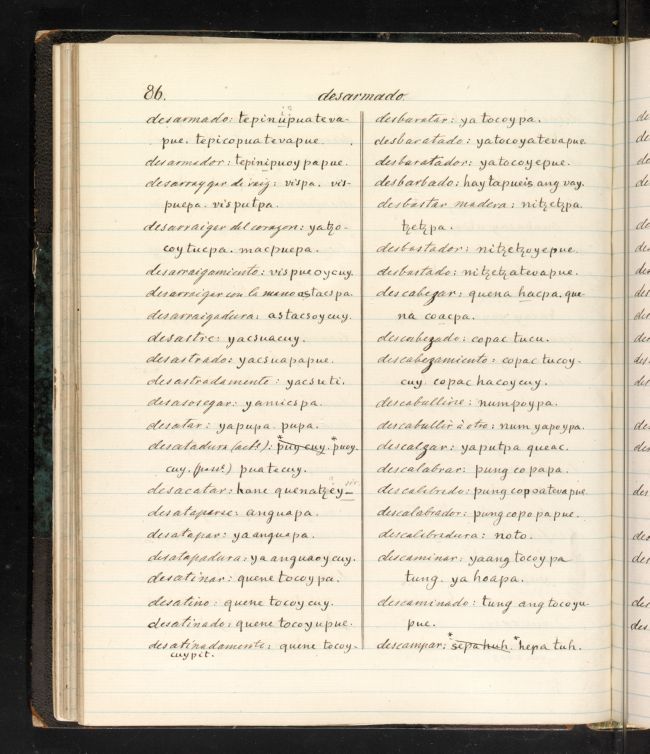 86.
desarmado.
desarmado: tepinupuateva-
pue. tepicopuatevapue.
desarmedor: tepinipuoypapue.
desarraygar de raiz: vispa. vis-
puepa. visputpa.
desarraigar del corazon: yatzo-
coytucpa. macpuepa.
desarraigamiento: vispueoycuy.
desarraigar con la mano astacspa.
desarraigadura: astacsoycuy.
desastre: yacsuacuy.
desastrado: yacsuapapue.
desastradamente: yacsuti.
desasosegar: yamicspa.
desatar: yapupa. pupa.
desatadura (act.): puycuy. *puoy-
cuy. (pas.) puatecuy.
desacatar: hane quenatzey
desataparse: anguapa.
desatapar: yaanguapa.
desatapadura: yaanguaoycuy.
desatinar: quene tocoypa.
desatino: quene tocoycuy.
desatinado: quene tocoyupue.
desatinadamente: quene tocoy-
cuypit.
desbaratar: yatocoypa.
desbaratado: yatocoyatevapue.
desbaratador: yatocoyepue.
desbarbado: hay tapueis ang vay.
desbastar madera: nitzetzpa.
tzetzpa.
desbastador: nitzetzoyepue.
desbastado: nitzetzatevapue.
descabezar: quena hacpa. que-
na coacpa.
descabezado: copac tucu.
descabezamiento: copac tucoy-
cuy. copac hacoycuy.
descabullirse: numpoypa.
descabullir à otro: num yapoypa.
descalzar: yaputpa queac.
descalabrar: pung copapa.
descalebrado: pung copoatevapue.
descalabrador: pung copopapue.
descalebradura: noto.
descaminar: yaang tocoypa
tung. ya hoapa.
descaminado: tung ang tocoyu-
pue.
descampar: *sepa huh. *hepa tuh.